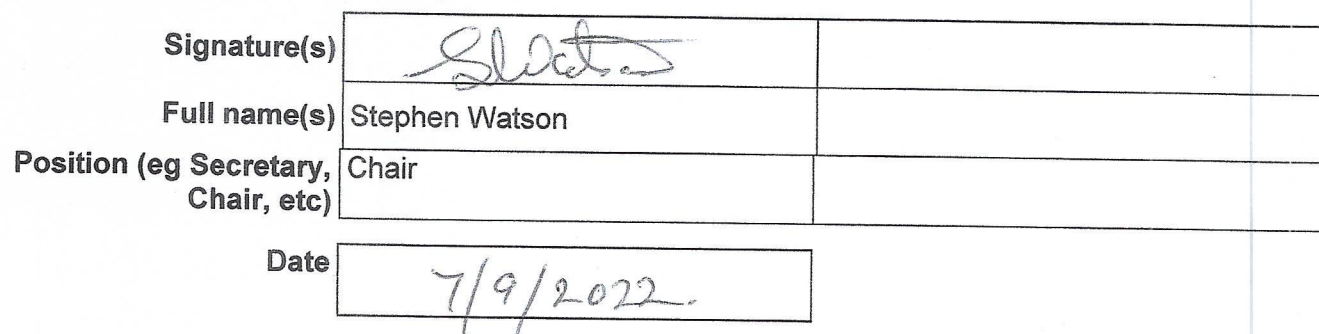 Signature(s) SWatson
Full name(s) Stephen Watson
Position (eg Secretary, Chair
Chair, etc)
Date 7/9/2022.